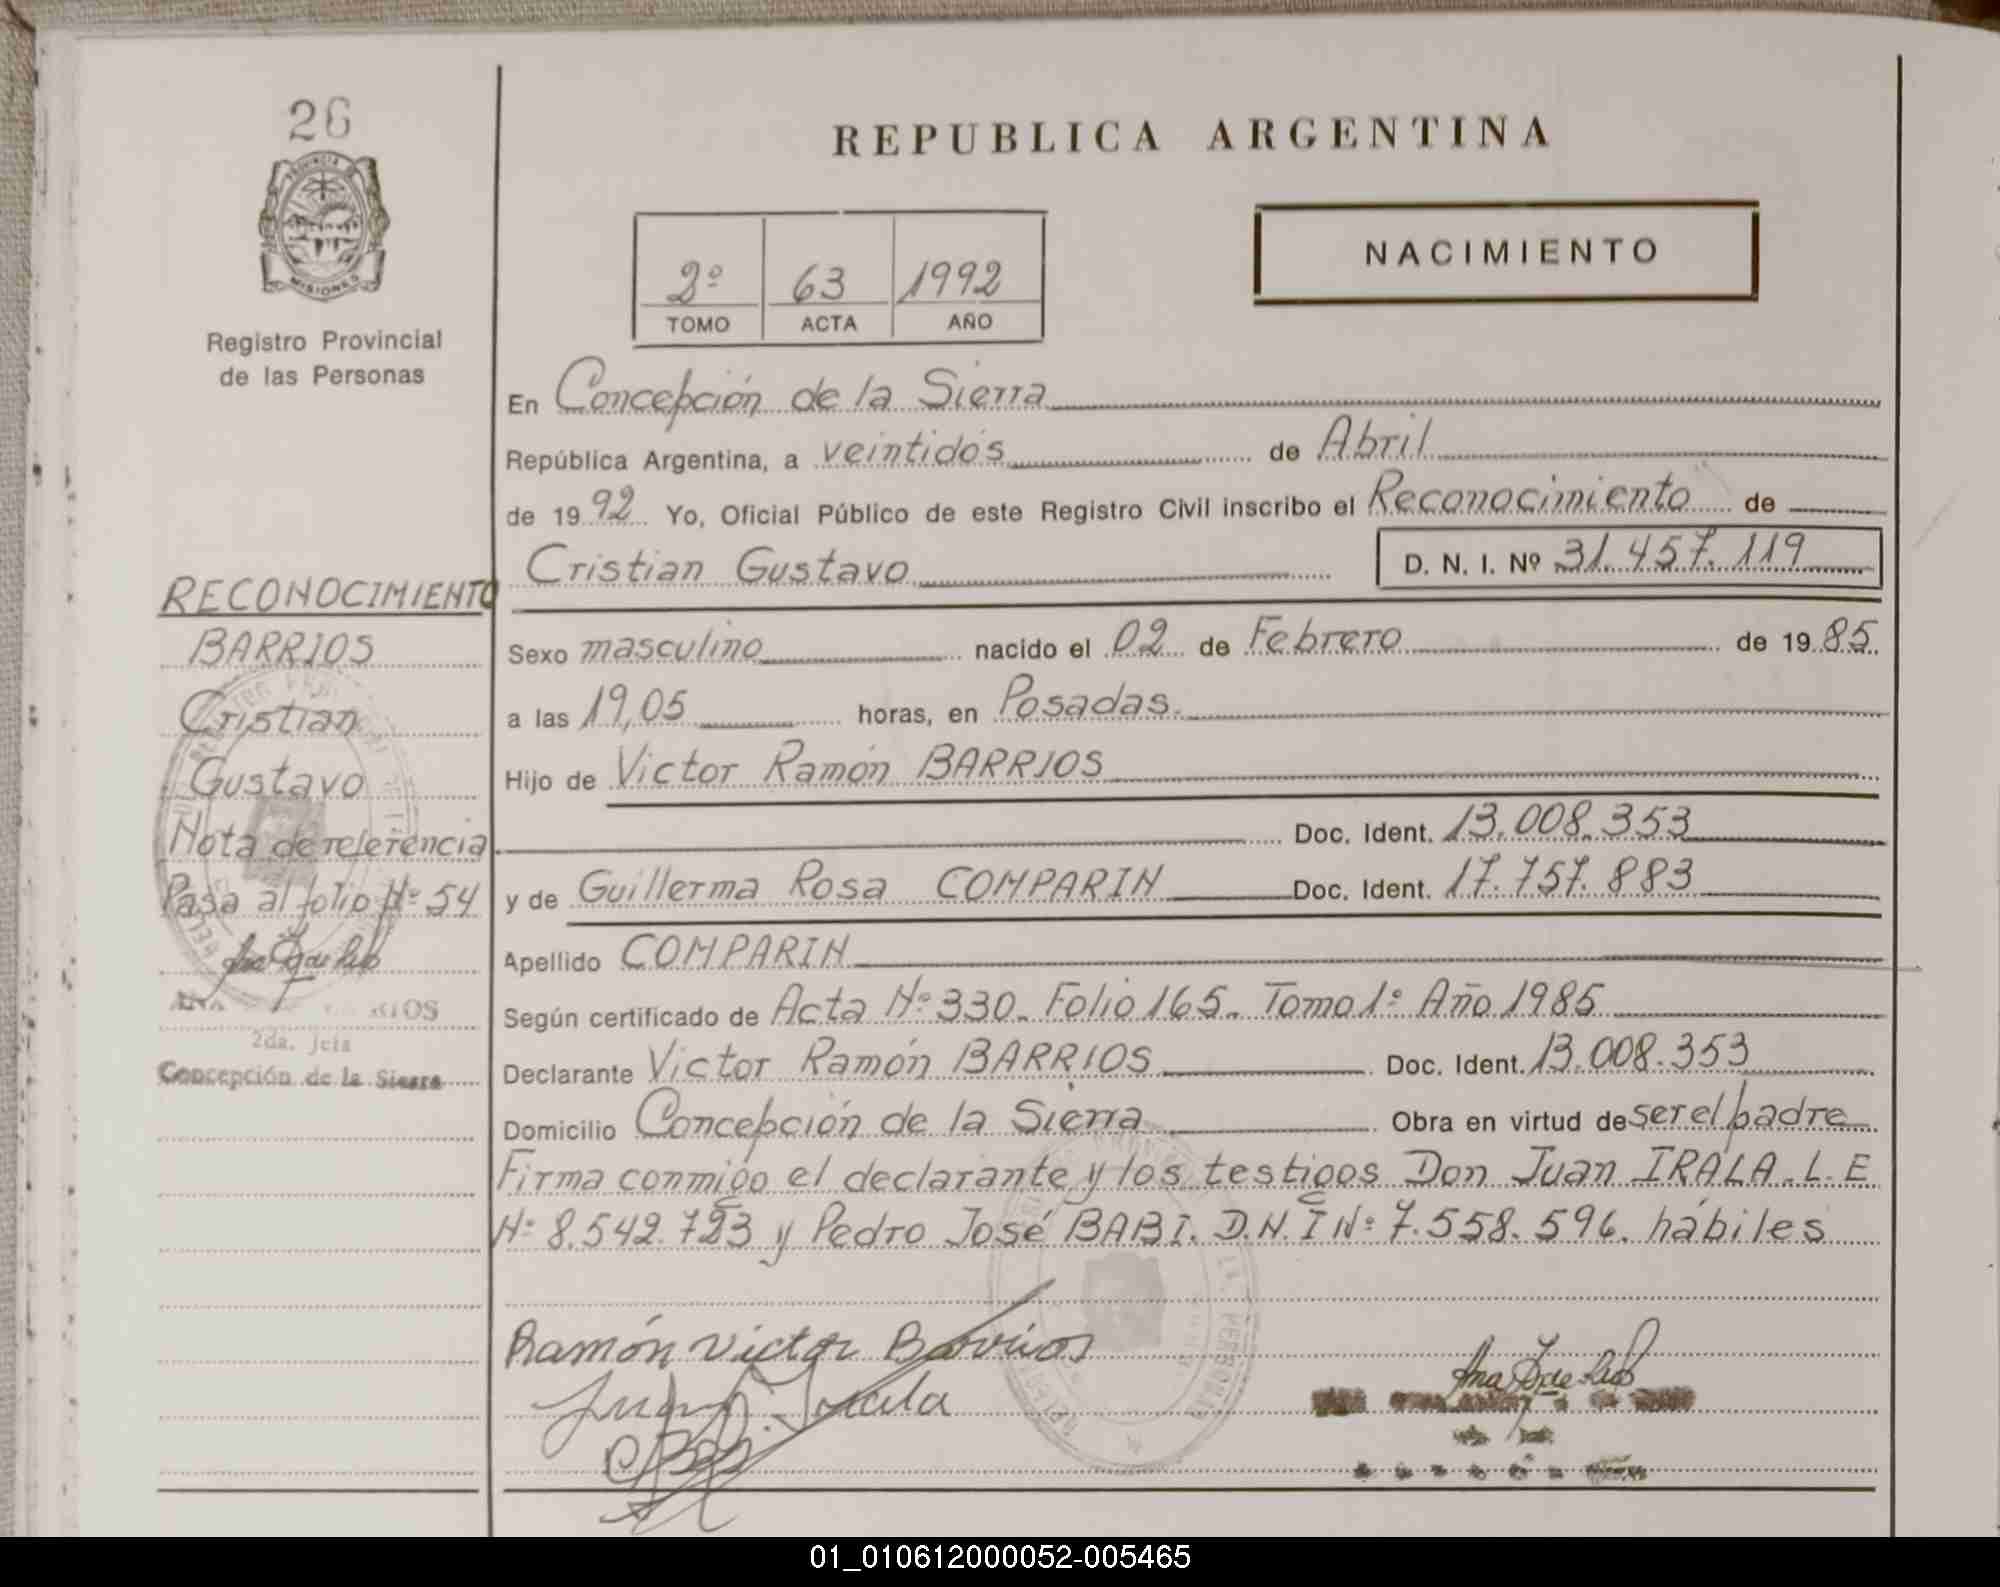 26
PROVINCIA DE
MISIONES
Registro Provincial
de las Personas
RECONOCIMIENTO
BARRIOS
Cristian
Gustavo
Nota de referencia
Pasa al folio Nº 54
2da. jcia
Concepción de la Sierra
REPUBLICA ARGENTINA
NACIMIENTO
2º 63 1992
TOMO ACTA AÑO
En Concepción de la Sierra
República Argentina, a veintidós de Abril
de 1992 Yo, Oficial Público de este Registro Civil inscribo el Reconocimiento de
Cristian Gustavo D. N. I. Nº 31.457.119
Sexo masculino nacido el 02 de Febrero de 1985.
a las 19,05 horas, en Posadas.
Hijo de Victor Ramón BARRIOS
Doc. Ident. 13.008.353
y de Guillerma Rosa COMPARIN Doc. Ident. 17.757.883
Apellido COMPARIN
Según certificado de Acta Nº 330. Folio 165. Tomo 1º Año 1985
Declarante Victor Ramón BARRIOS Doc. Ident. 13.008.353
Domicilio Concepción de la Sierra Obra en virtud de ser el padre
Firma conmigo el declarante y los testigos Don Juan IRALA. L.E
Nº 8.542.723 y Pedro José BABI. D.N.I Nº 7.558.596. hábiles
Ramón Victor Barrios
01_010612000052-005465